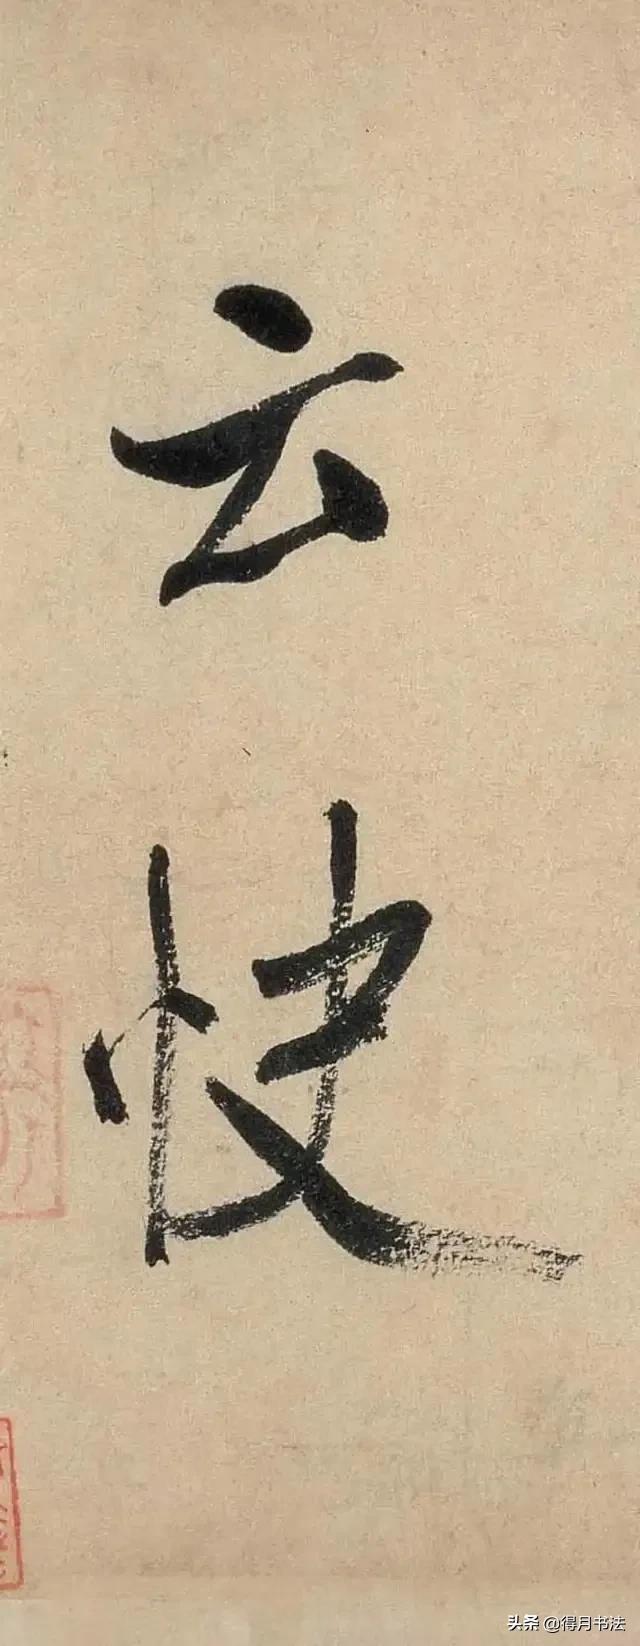 云
快
头条 @得月书法